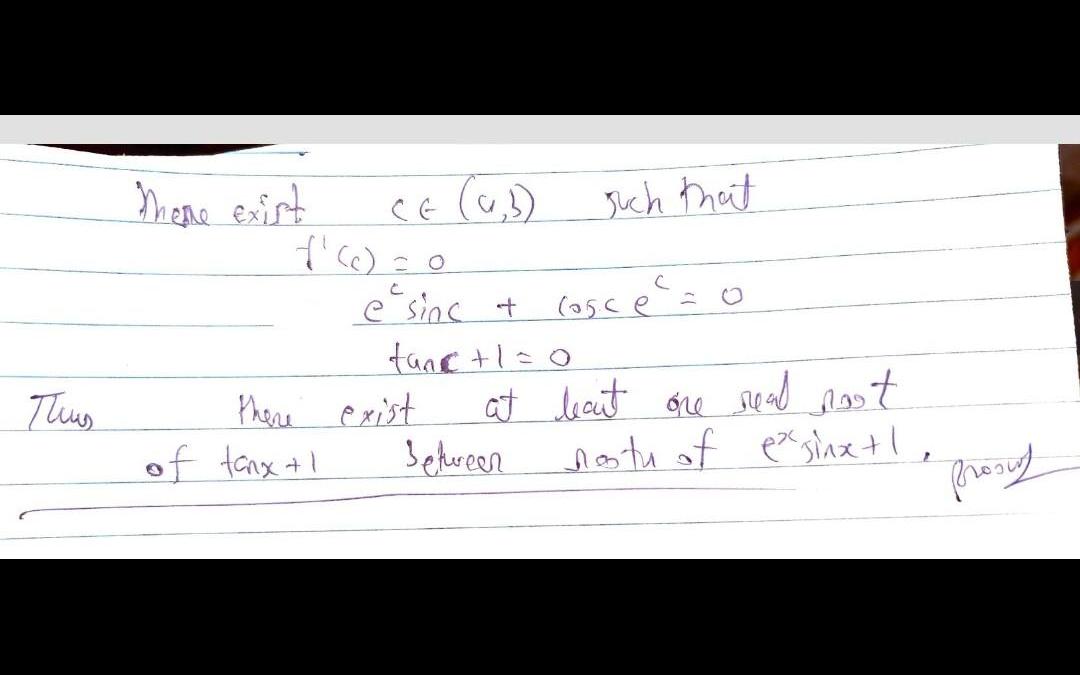 There exist c ∈ (a,b) such that
f'(c) = 0
e^c sinc + cosc e^c = 0
tanc + 1 = 0
Thus there exist at least one real root
of tanx + 1 between roots of e^x sinx + 1. proved